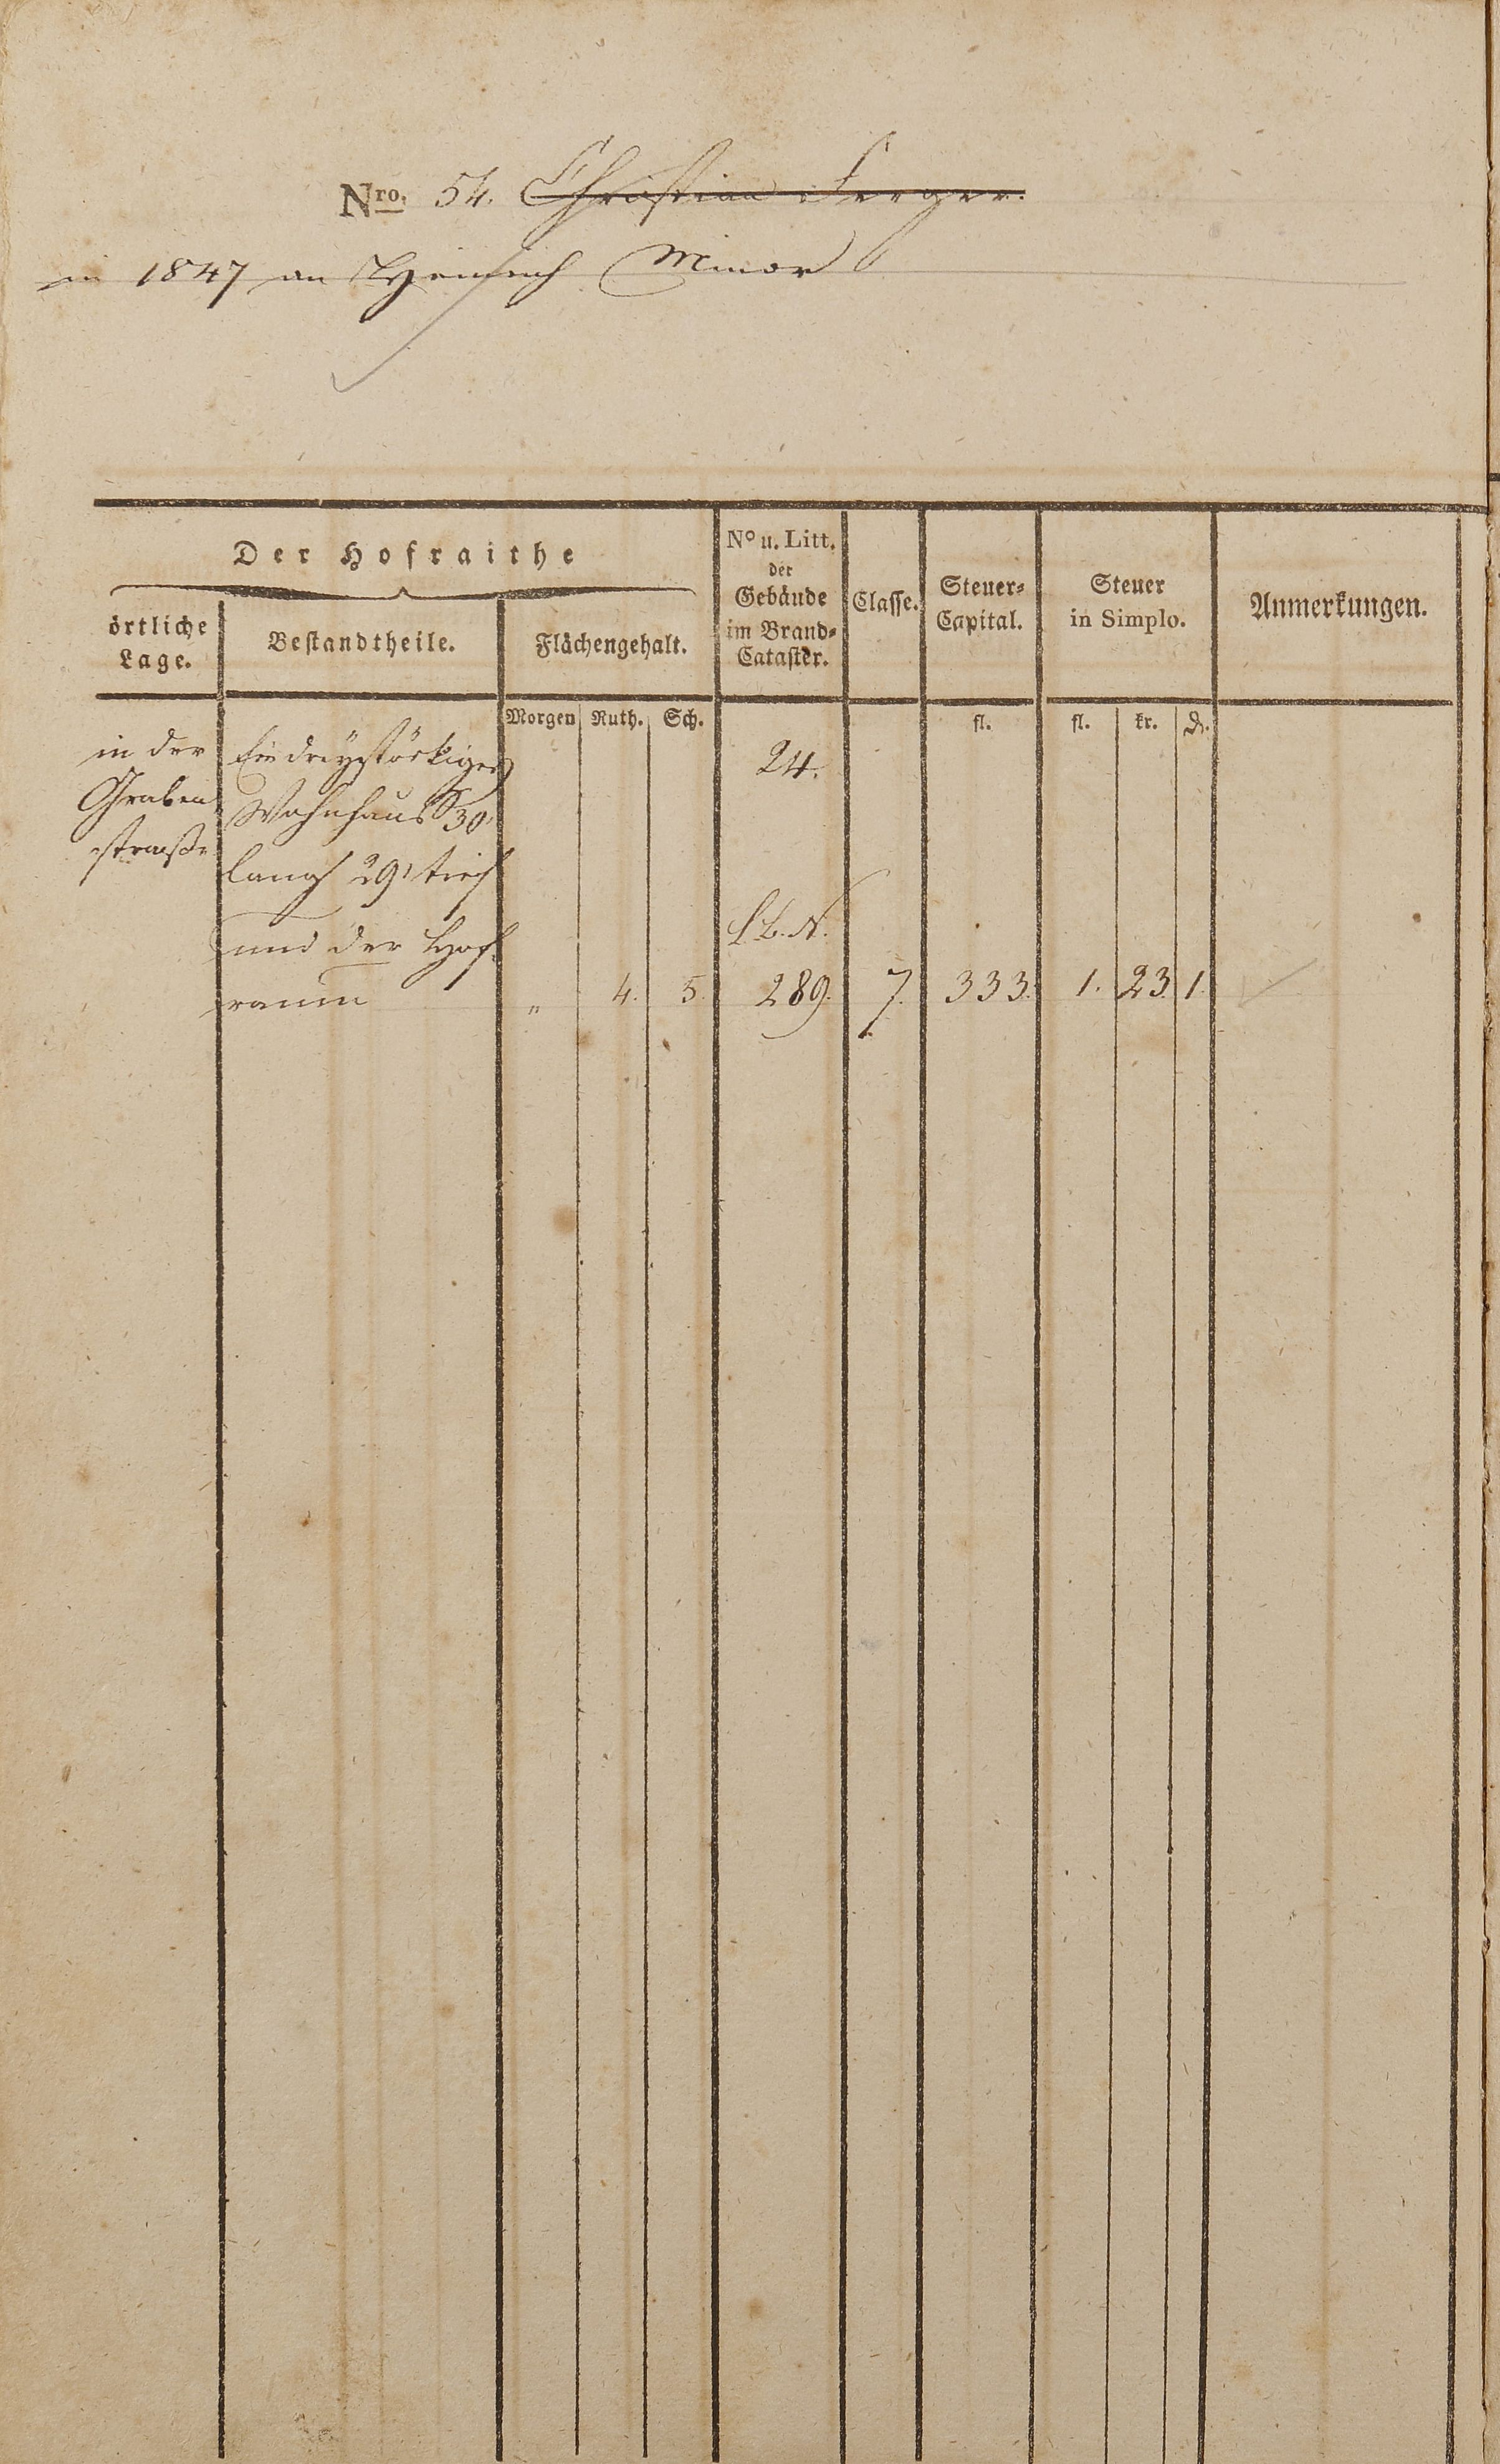 Nro. 54. Christian Seeger.
in 1847 an Heinrich Minor
Der Hofraithe
örtliche
Lage.
Bestandtheile.
Flächengehalt.
No u. Litt.
der
Gebäude
im Brand-
Cataster.
Classe.
Steuer-
Capital.
Steuer
in Simplo.
Anmerkungen.
Morgen Ruth. Sch.
fl.
fl. kr. ₰.
in der
Graben
straße
Ein dreystöckiges
Wohnhaus 30'
lang 29' tief
und der Hof-
raum
24.
St. N.
„ 4. 5. 289. 7. 333. 1. 23. 1.